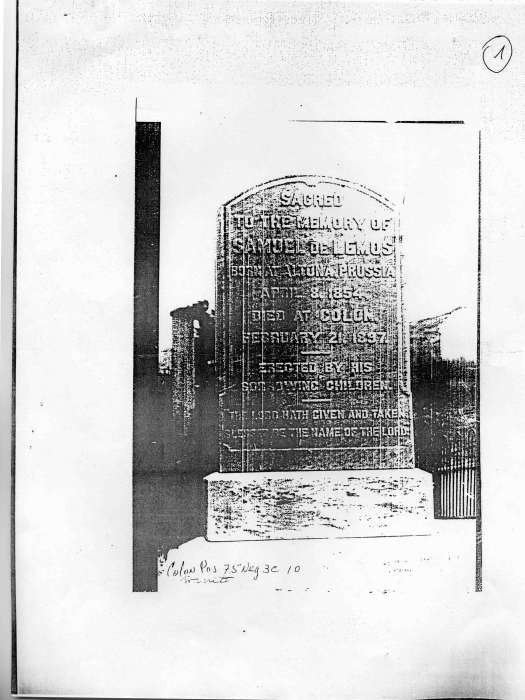 1
SACRED
TO THE MEMORY OF
SAMUEL DE LEMOS
BORN AT ALTONA, PRUSSIA
APRIL 8, 1854.
DIED AT COLON,
FEBRUARY 21, 1897.
ERECTED BY HIS
SORROWING CHILDREN.
THE LORD HATH GIVEN AND TAKEN
BLESSED BE THE NAME OF THE LORD
Colon Pos 75 Neg 3C 10